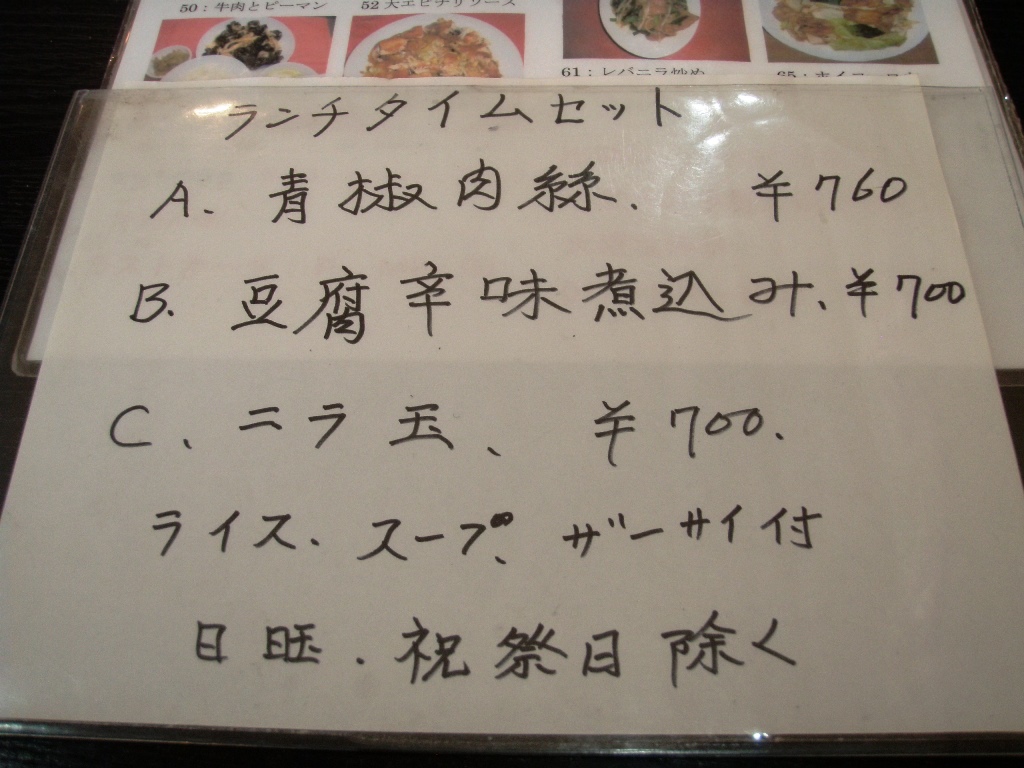 50：牛肉とピーマン
52大エビチリソース
61：レバニラ炒め
65：ホイコーロウ
ランチタイムセット
A. 青椒肉絲. ￥760
B. 豆腐辛味煮込み、￥700
C、ニラ玉、￥700.
ライス、スープ、ザーサイ付
日旺.祝祭日除く